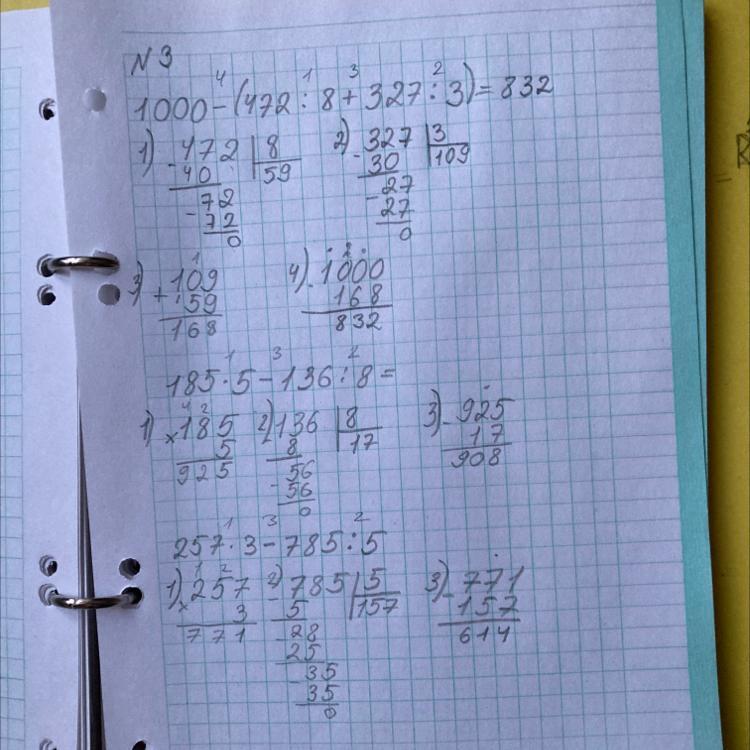 N 3
4 1 3 2
1000 - (472 : 8 + 327 : 3) = 832
1) 472 8 2) 327 3
- 40 59 - 30 109
72 27
- 72 - 27
0 0
1
3) 109 4) 1000
+ 59 - 168
168 832
1 3 2
185 · 5 - 136 : 8 =
4 2
1) 185 2) 136 8 3) 925
× 5 - 8 17 - 17
925 56 908
- 56
0
1 3 2
257 · 3 - 785 : 5
1 2
1) 257 2) 785 5 3) 771
× 3 - 5 157 - 157
771 28 614
- 25
35
- 35
0